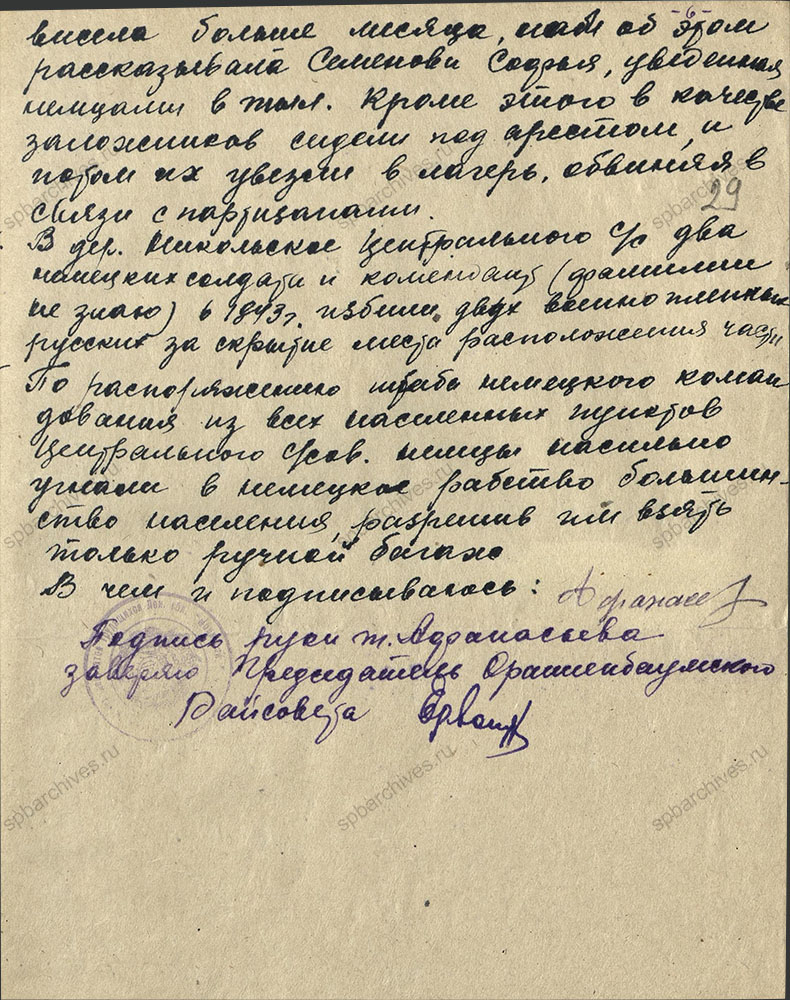 висела больше месяца, нам об этом
рассказывала Семенова Софья, уведенная
немцами в тыл. Кроме этого в качестве
заложников сидели под арестом, и
потом их увезли в лагерь, обвиняя в
связи с партизанами.
29
В дер. Никольское Центрального С/с два
немецких солдата и комендант (фамилии
не знаю) в 1943г. избили двух военнопленных
русских за скрытие места расположения части
По распоряжению штаба немецкого коман
дования из всех населенных пунктов
Центрального С/сов. немцы насильно
угнали в немецкое рабство большин-
ство населения, разрешив им взять
только ручной багаж
В чем и подписываюсь: Афанасьев
Подпись руки т. Афанасьева
заверяю Председатель Ораниенбаумского
Райсовета
spbarchives.ru